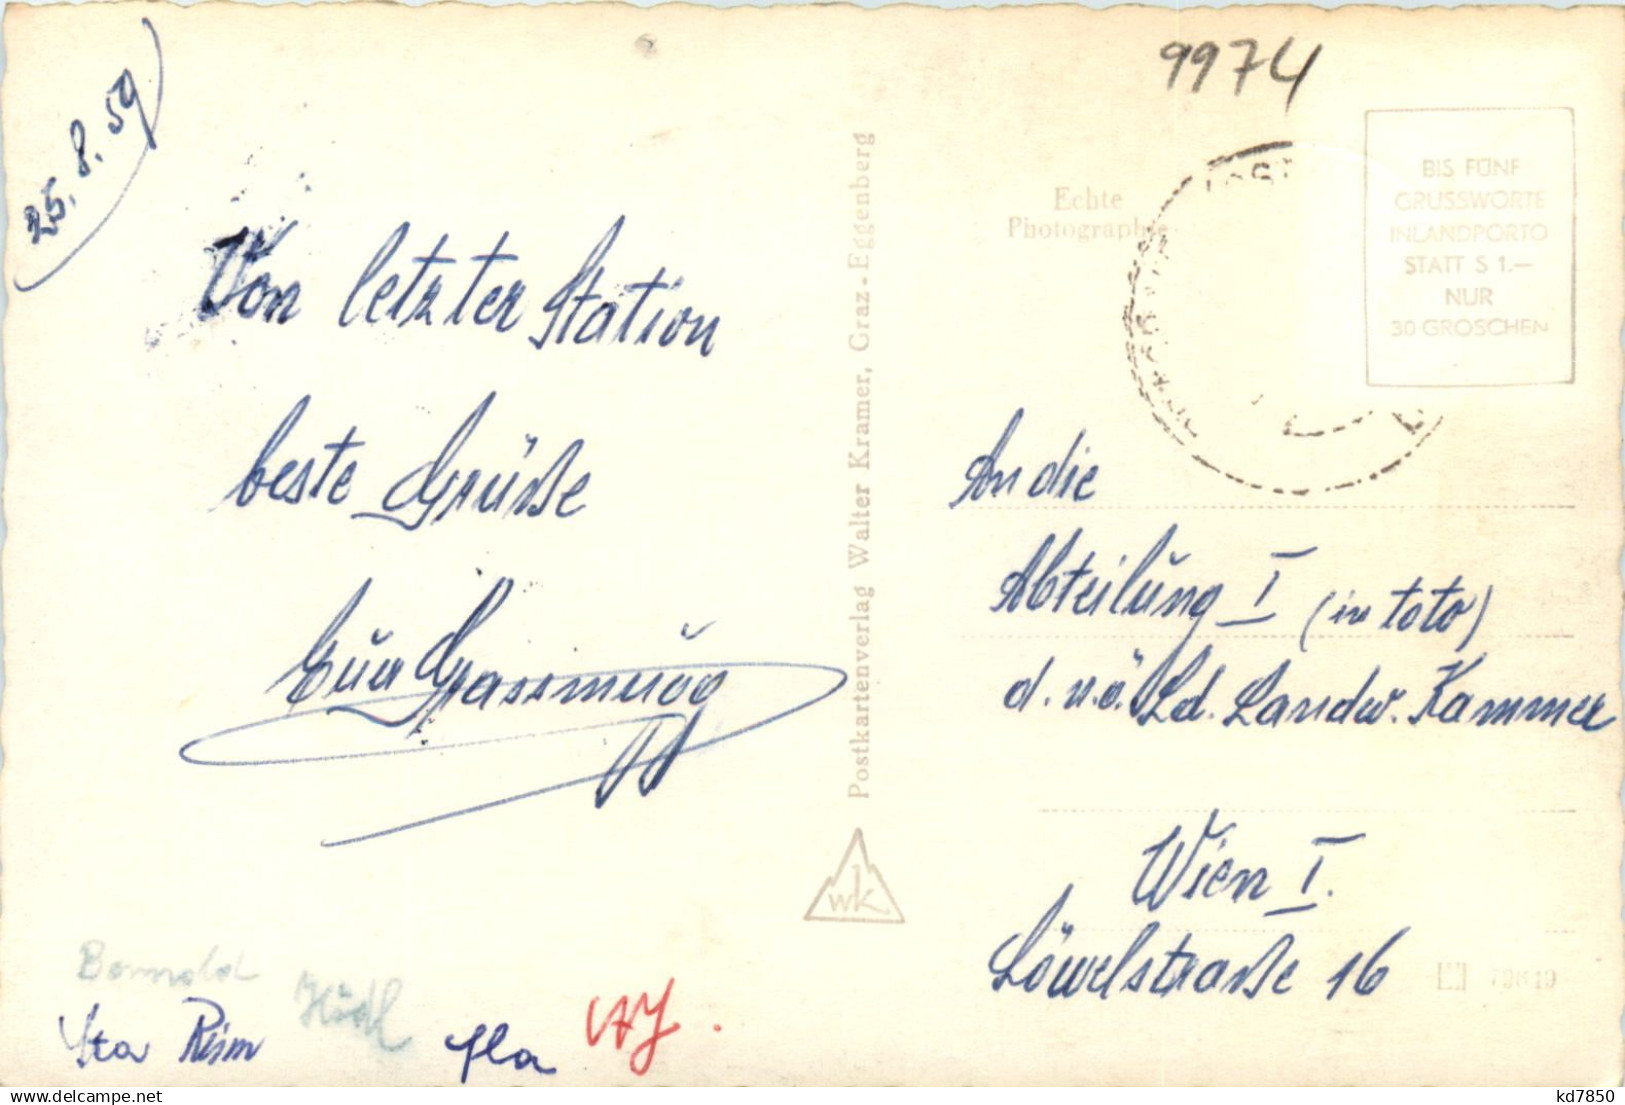 25. 8. 59
Von letzter Station
beste Grüße
Eva Grassmugg
Hödl
9974
Echte
Photographie
BIS FÜNF
GRUSSWORTE
INLANDPORTO
STATT S 1.—
NUR
30 GROSCHEN
Postkartenverlag Walter Kramer, Graz-Eggenberg
wk
An die
Abteilung I (in toto)
d. n.ö. Ld. Landw. Kammer
Wien I.
Löwelstraße 16
delcampe.net
kd7850